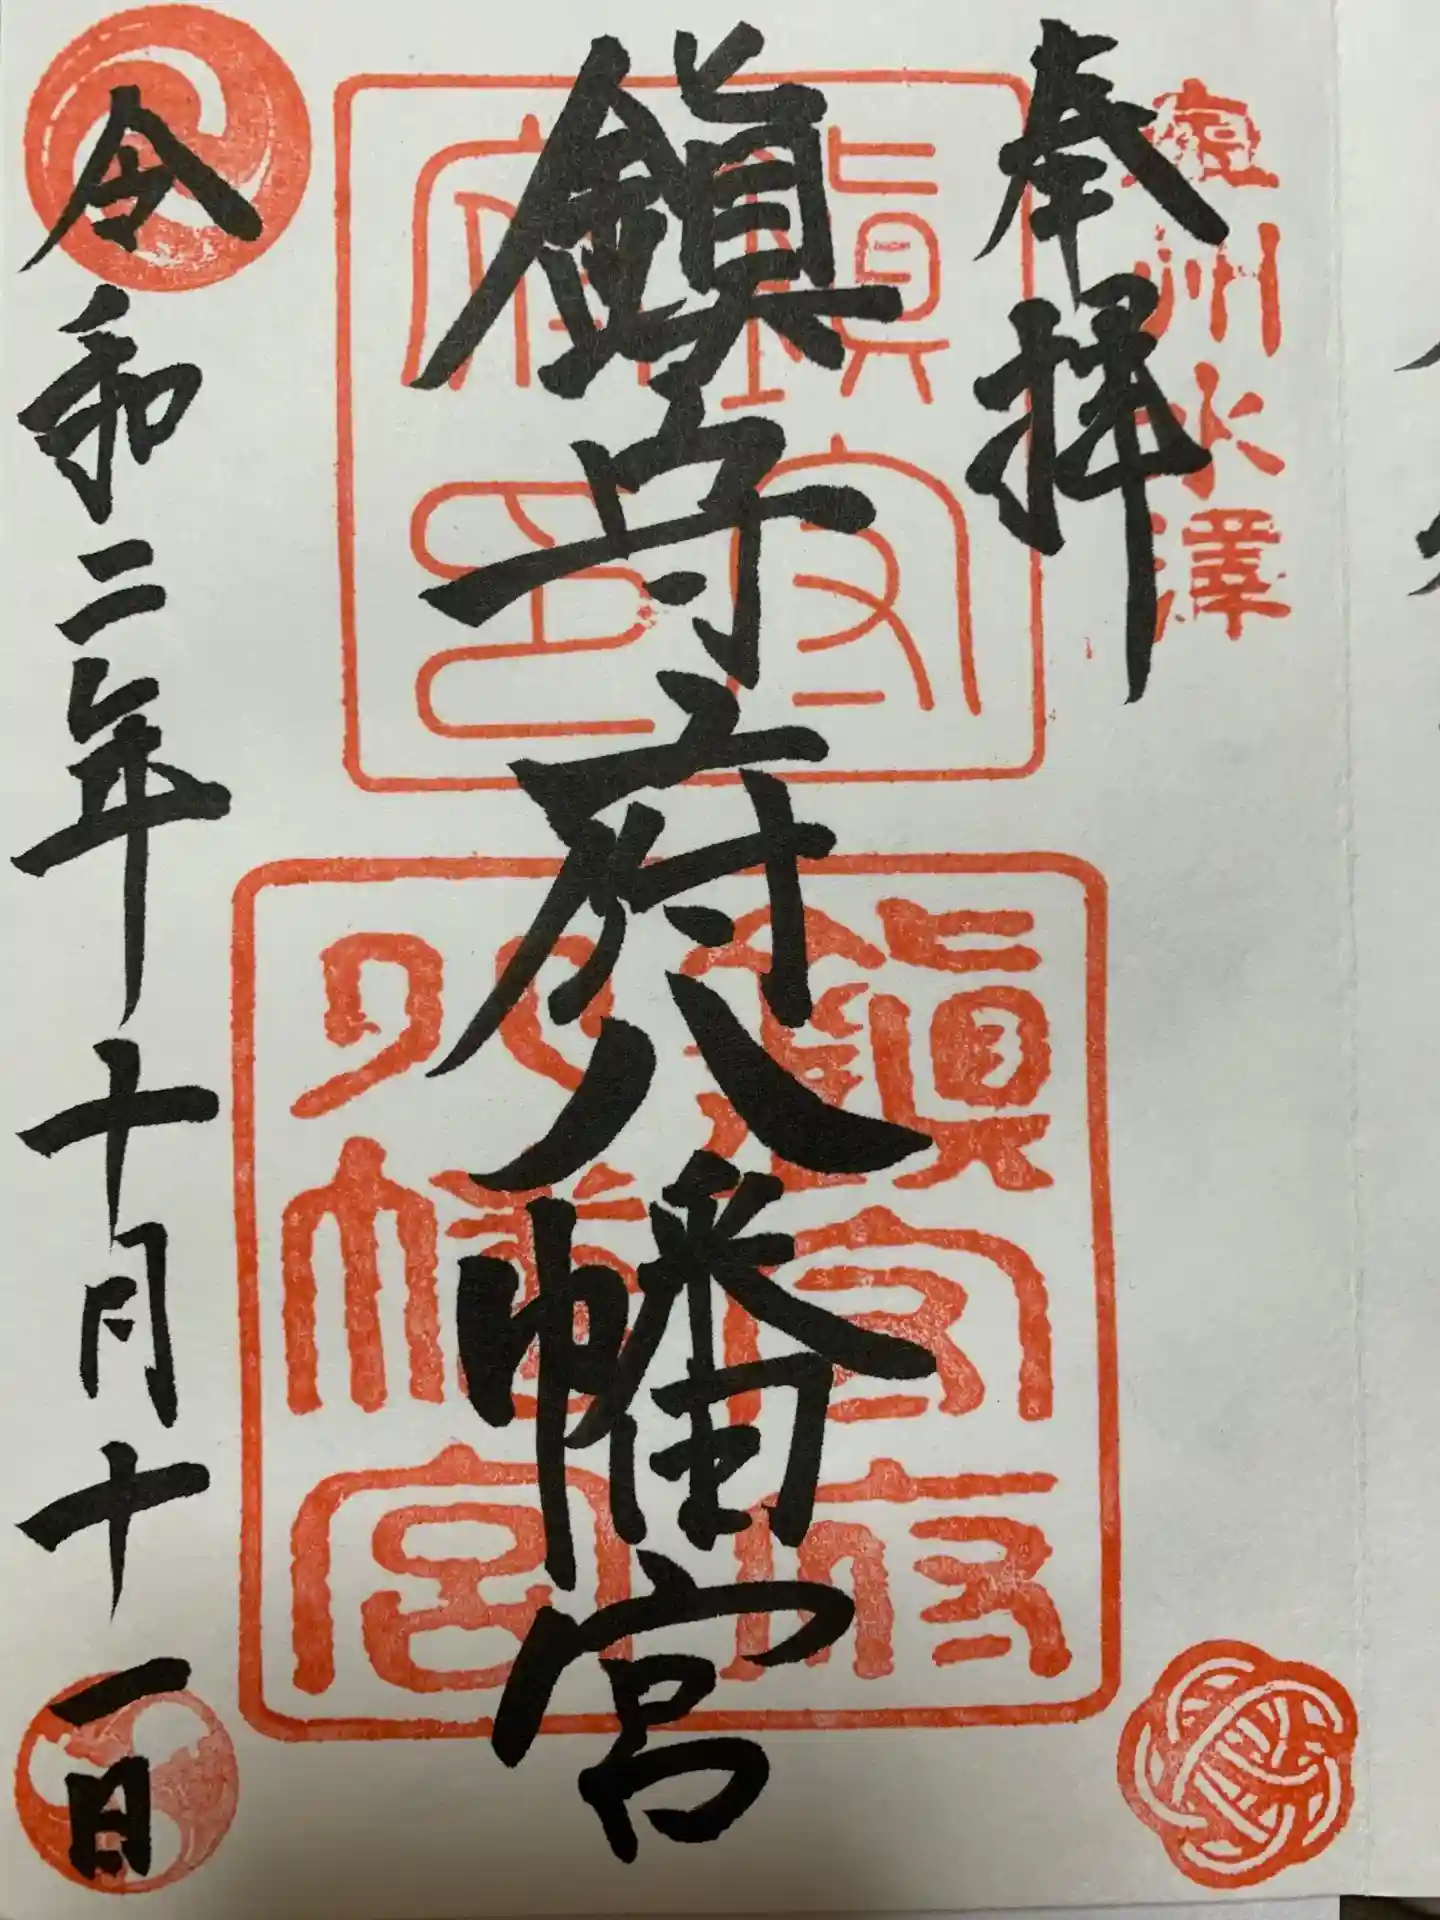 奉拝
奥州水澤
鎮守府八幡宮
鎮守府印
鎮守府八幡宮
令和二年十月十一日